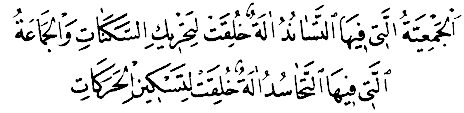 اَلْجَمْعِيَّةُ الَّتِى فِيهَا التَّسَانُدُ اٰلَةٌ خُلِقَتْ لِتَحْرِيكِ السَّكَنَاتِ وَالْجَمَاعَةُ
الَّتِى فِيهَا التَّحَاسُدُ اٰلَةٌ خُلِقَتْ لِتَسْكِينِ الْحَرَكَاتِ